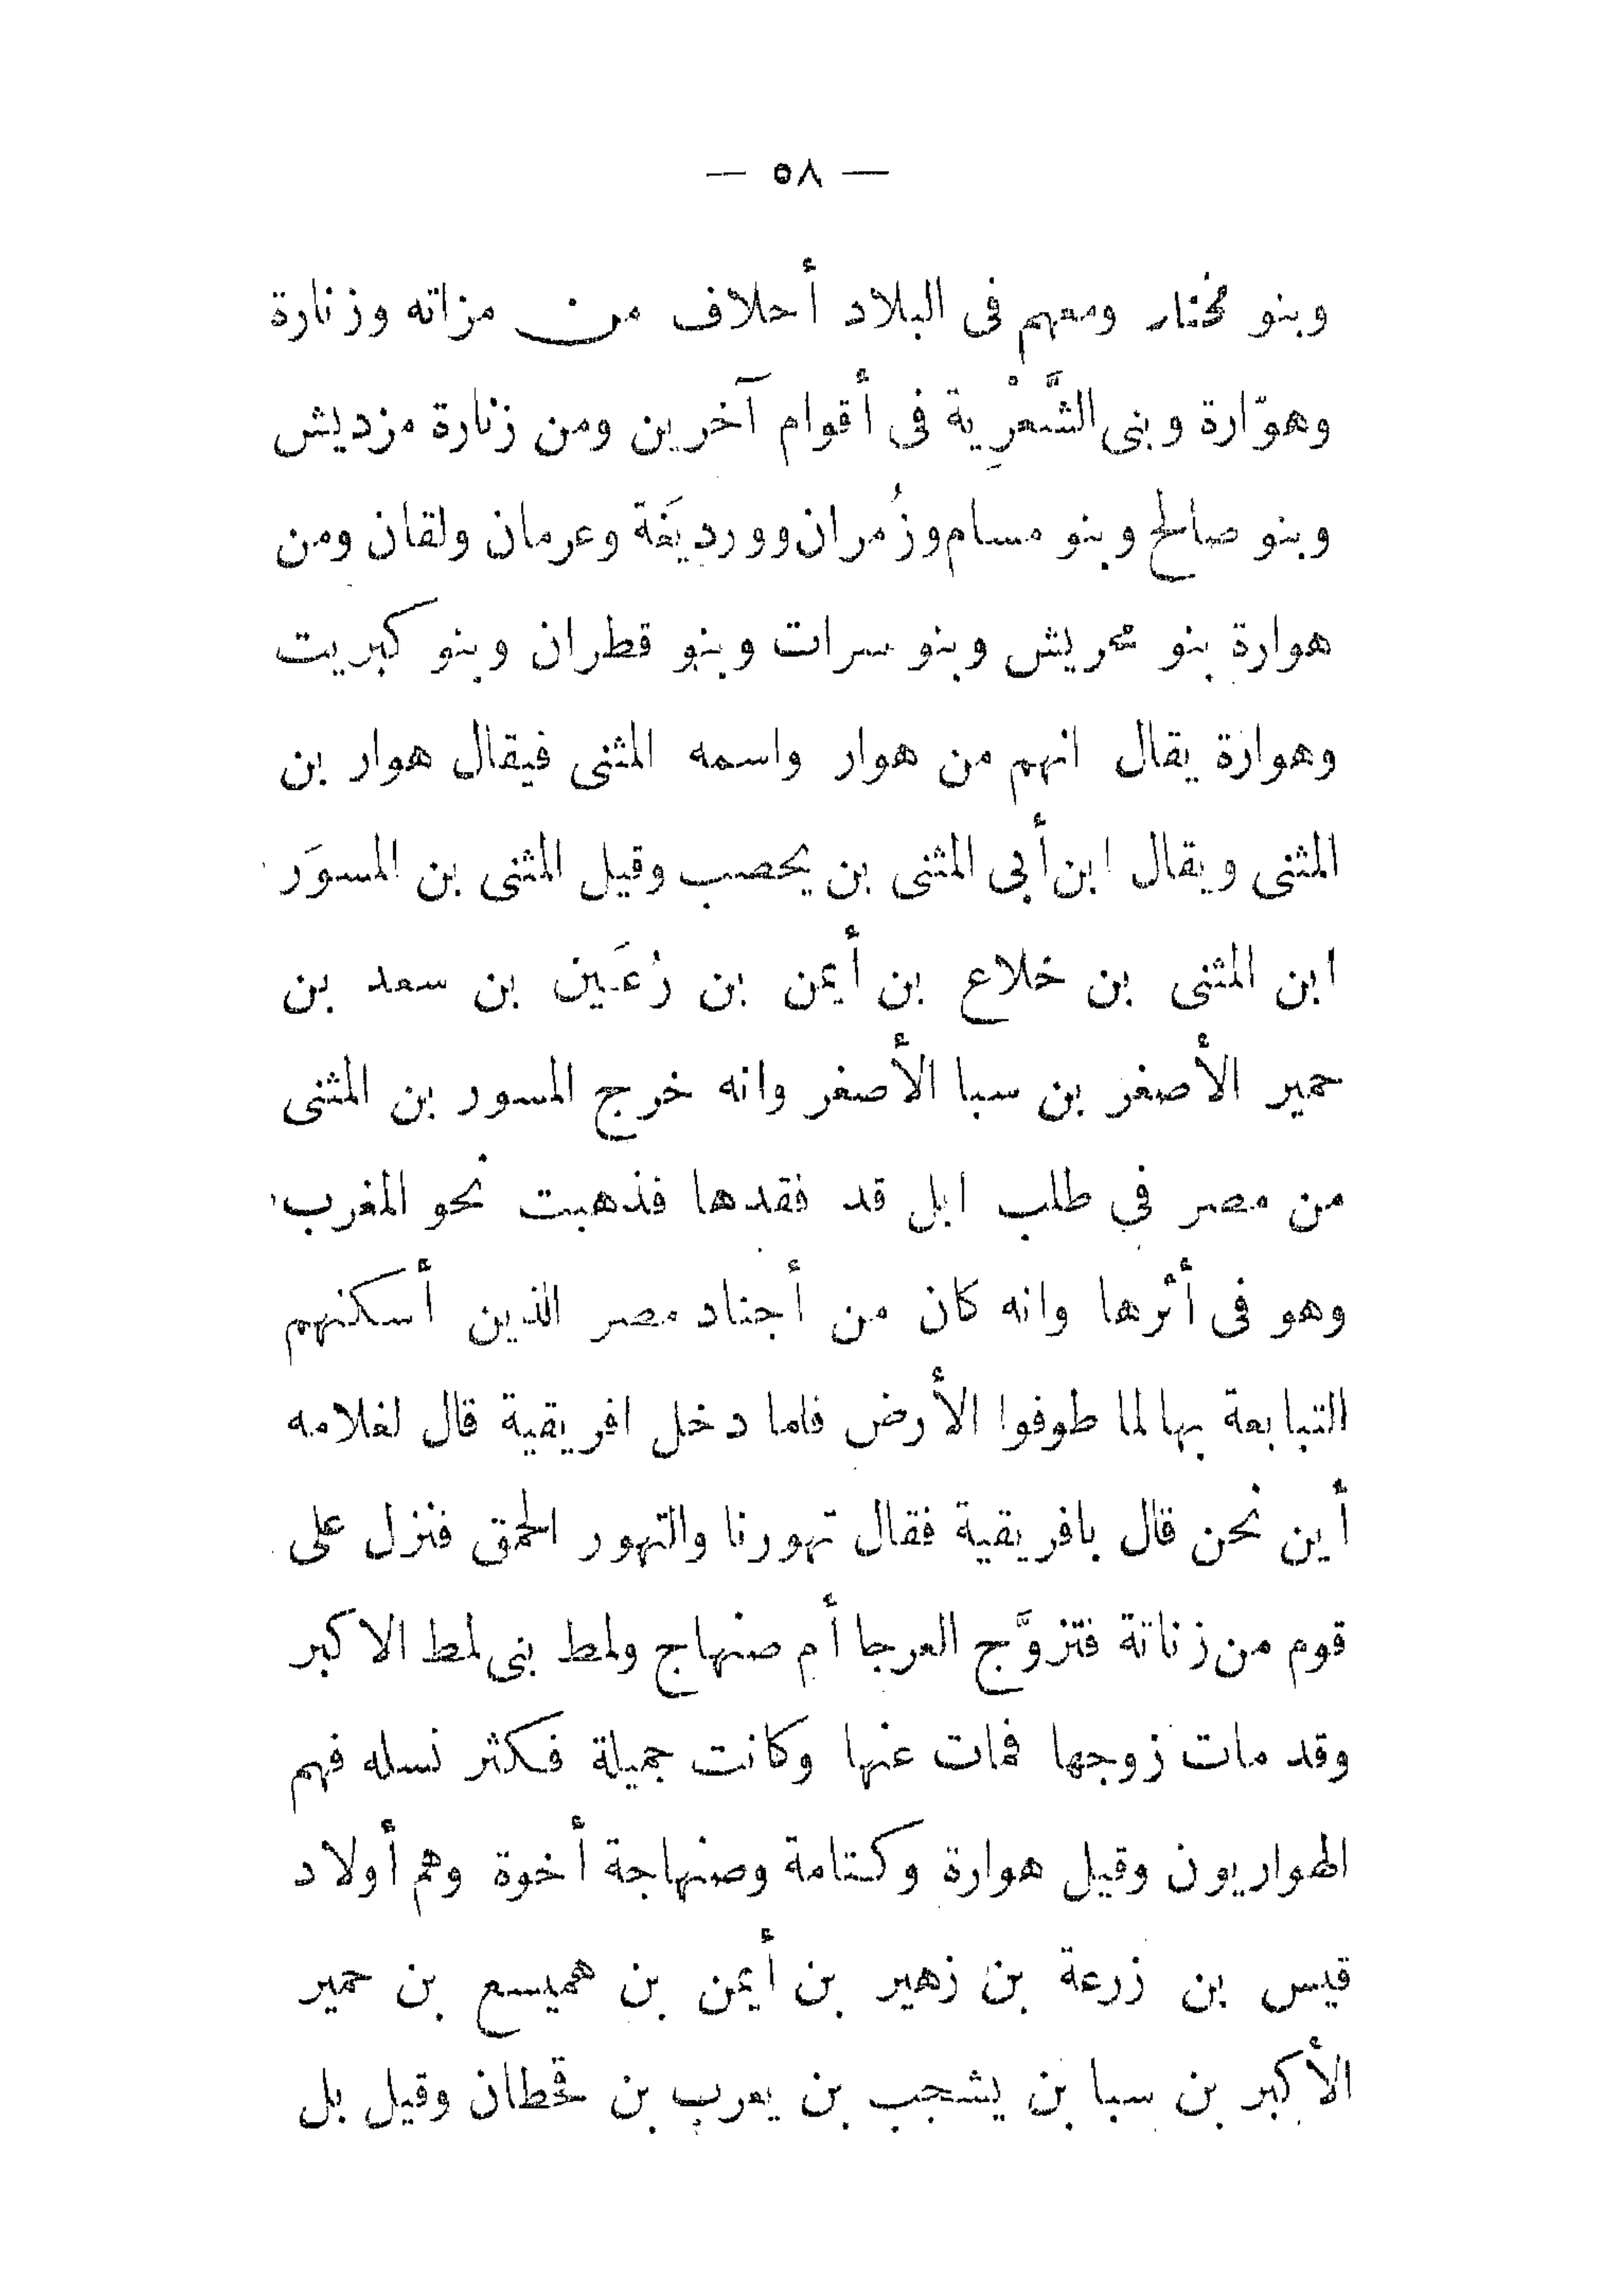 — ٥٨ —
وبنو مختار ومعهم فى البلاد أحلاف من مزاته وزنارة
وهوّارة وبنى الشَّعْرِية فى أقوام آخرين ومن زنارة مزديش
وبنو صالح وبنو مسام وزُمران وورديغَة وعرمان ولقان ومن
هوارة بنو محريش وبنو سرات وبنو قطران وبنو كبريت
وهوارة يقال انهم من هوار واسمه المثنى فيقال هوار بن
المثنى ويقال ابن أبى المثنى بن يحصب وقيل المثنى بن المسوَر
ابن المثنى بن خلاع بن أيمن بن رُعَين بن سعد بن
حمير الأصغر بن سبا الأصغر وانه خرج المسور بن المثنى
من مصر في طلب ابل قد فقدها فذهبت نحو المغرب
وهو فى أثرها وانه كان من أجناد مصر الذين أسكنهم
التبابعة بها لما طوفوا الأرض فلما دخل افريقية قال لغلامه
أين نحن قال بافريقية فقال تهورنا والتهور الحمق فنزل على
قوم من زناتة فتزوَّج العرجا أم صنهاج ولمط بنى لمط الاكبر
وقد مات زوجها فمات عنها وكانت جميلة فكثر نسله فهم
الهواريون وقيل هوارة وكتامة وصنهاجة أخوة وهم أولاد
قيس بن زرعة بن زهير بن أيمن بن هميسع بن حمير
الأكبر بن سبا بن يشجب بن يعرب بن قحطان وقيل بل